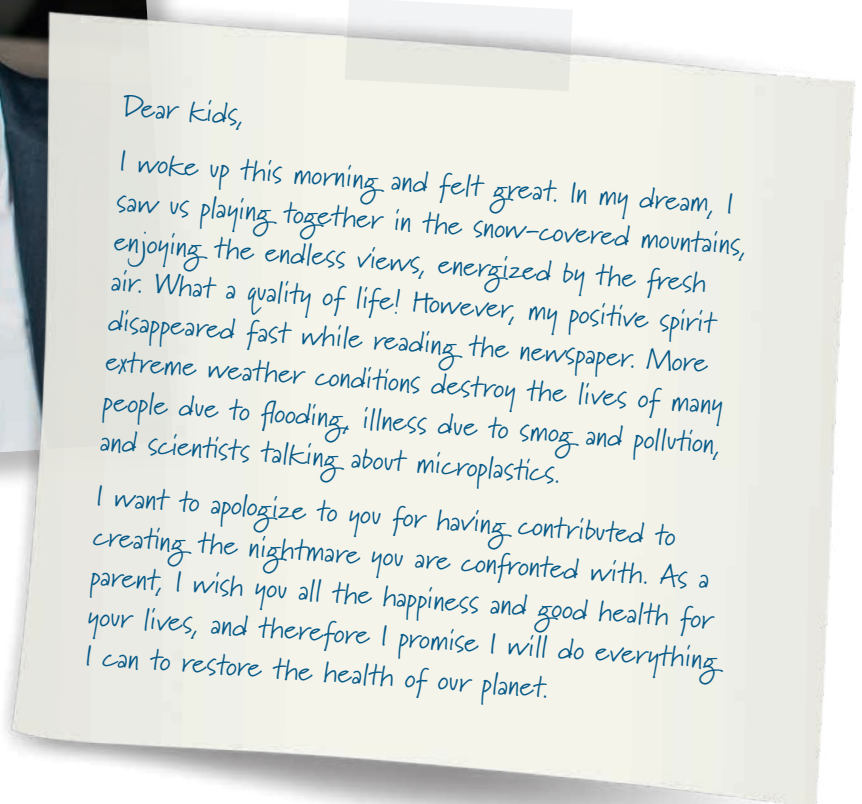 Dear kids,
I woke up this morning and felt great. In my dream, I
saw us playing together in the snow-covered mountains,
enjoying the endless views, energized by the fresh
air. What a quality of life! However, my positive spirit
disappeared fast while reading the newspaper. More
extreme weather conditions destroy the lives of many
people due to flooding, illness due to smog and pollution,
and scientists talking about microplastics.
I want to apologize to you for having contributed to
creating the nightmare you are confronted with. As a
parent, I wish you all the happiness and good health for
your lives, and therefore I promise I will do everything
I can to restore the health of our planet.